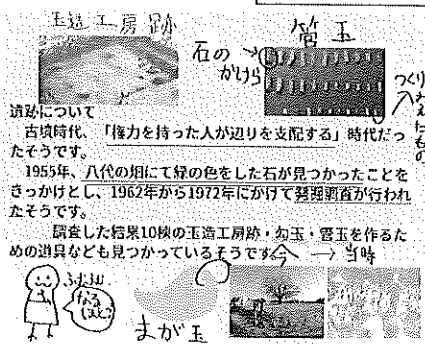 玉造工房跡
管玉
石の→
かけら
つくり
かえたもの
遺跡について
古墳時代、「権力を持った人が辺りを支配する」時代だっ
たそうです。
1955年、八代の畑にて緑の色をした石が見つかったことを
きっかけとし、1962年から1972年にかけて発掘調査が行われ
たそうです。
調査した結果10棟の玉造工房跡・勾玉・管玉を作るた
めの道具なども見つかっているそうです。
今 → 当時
ふむふむ
なる
ほど
まが玉